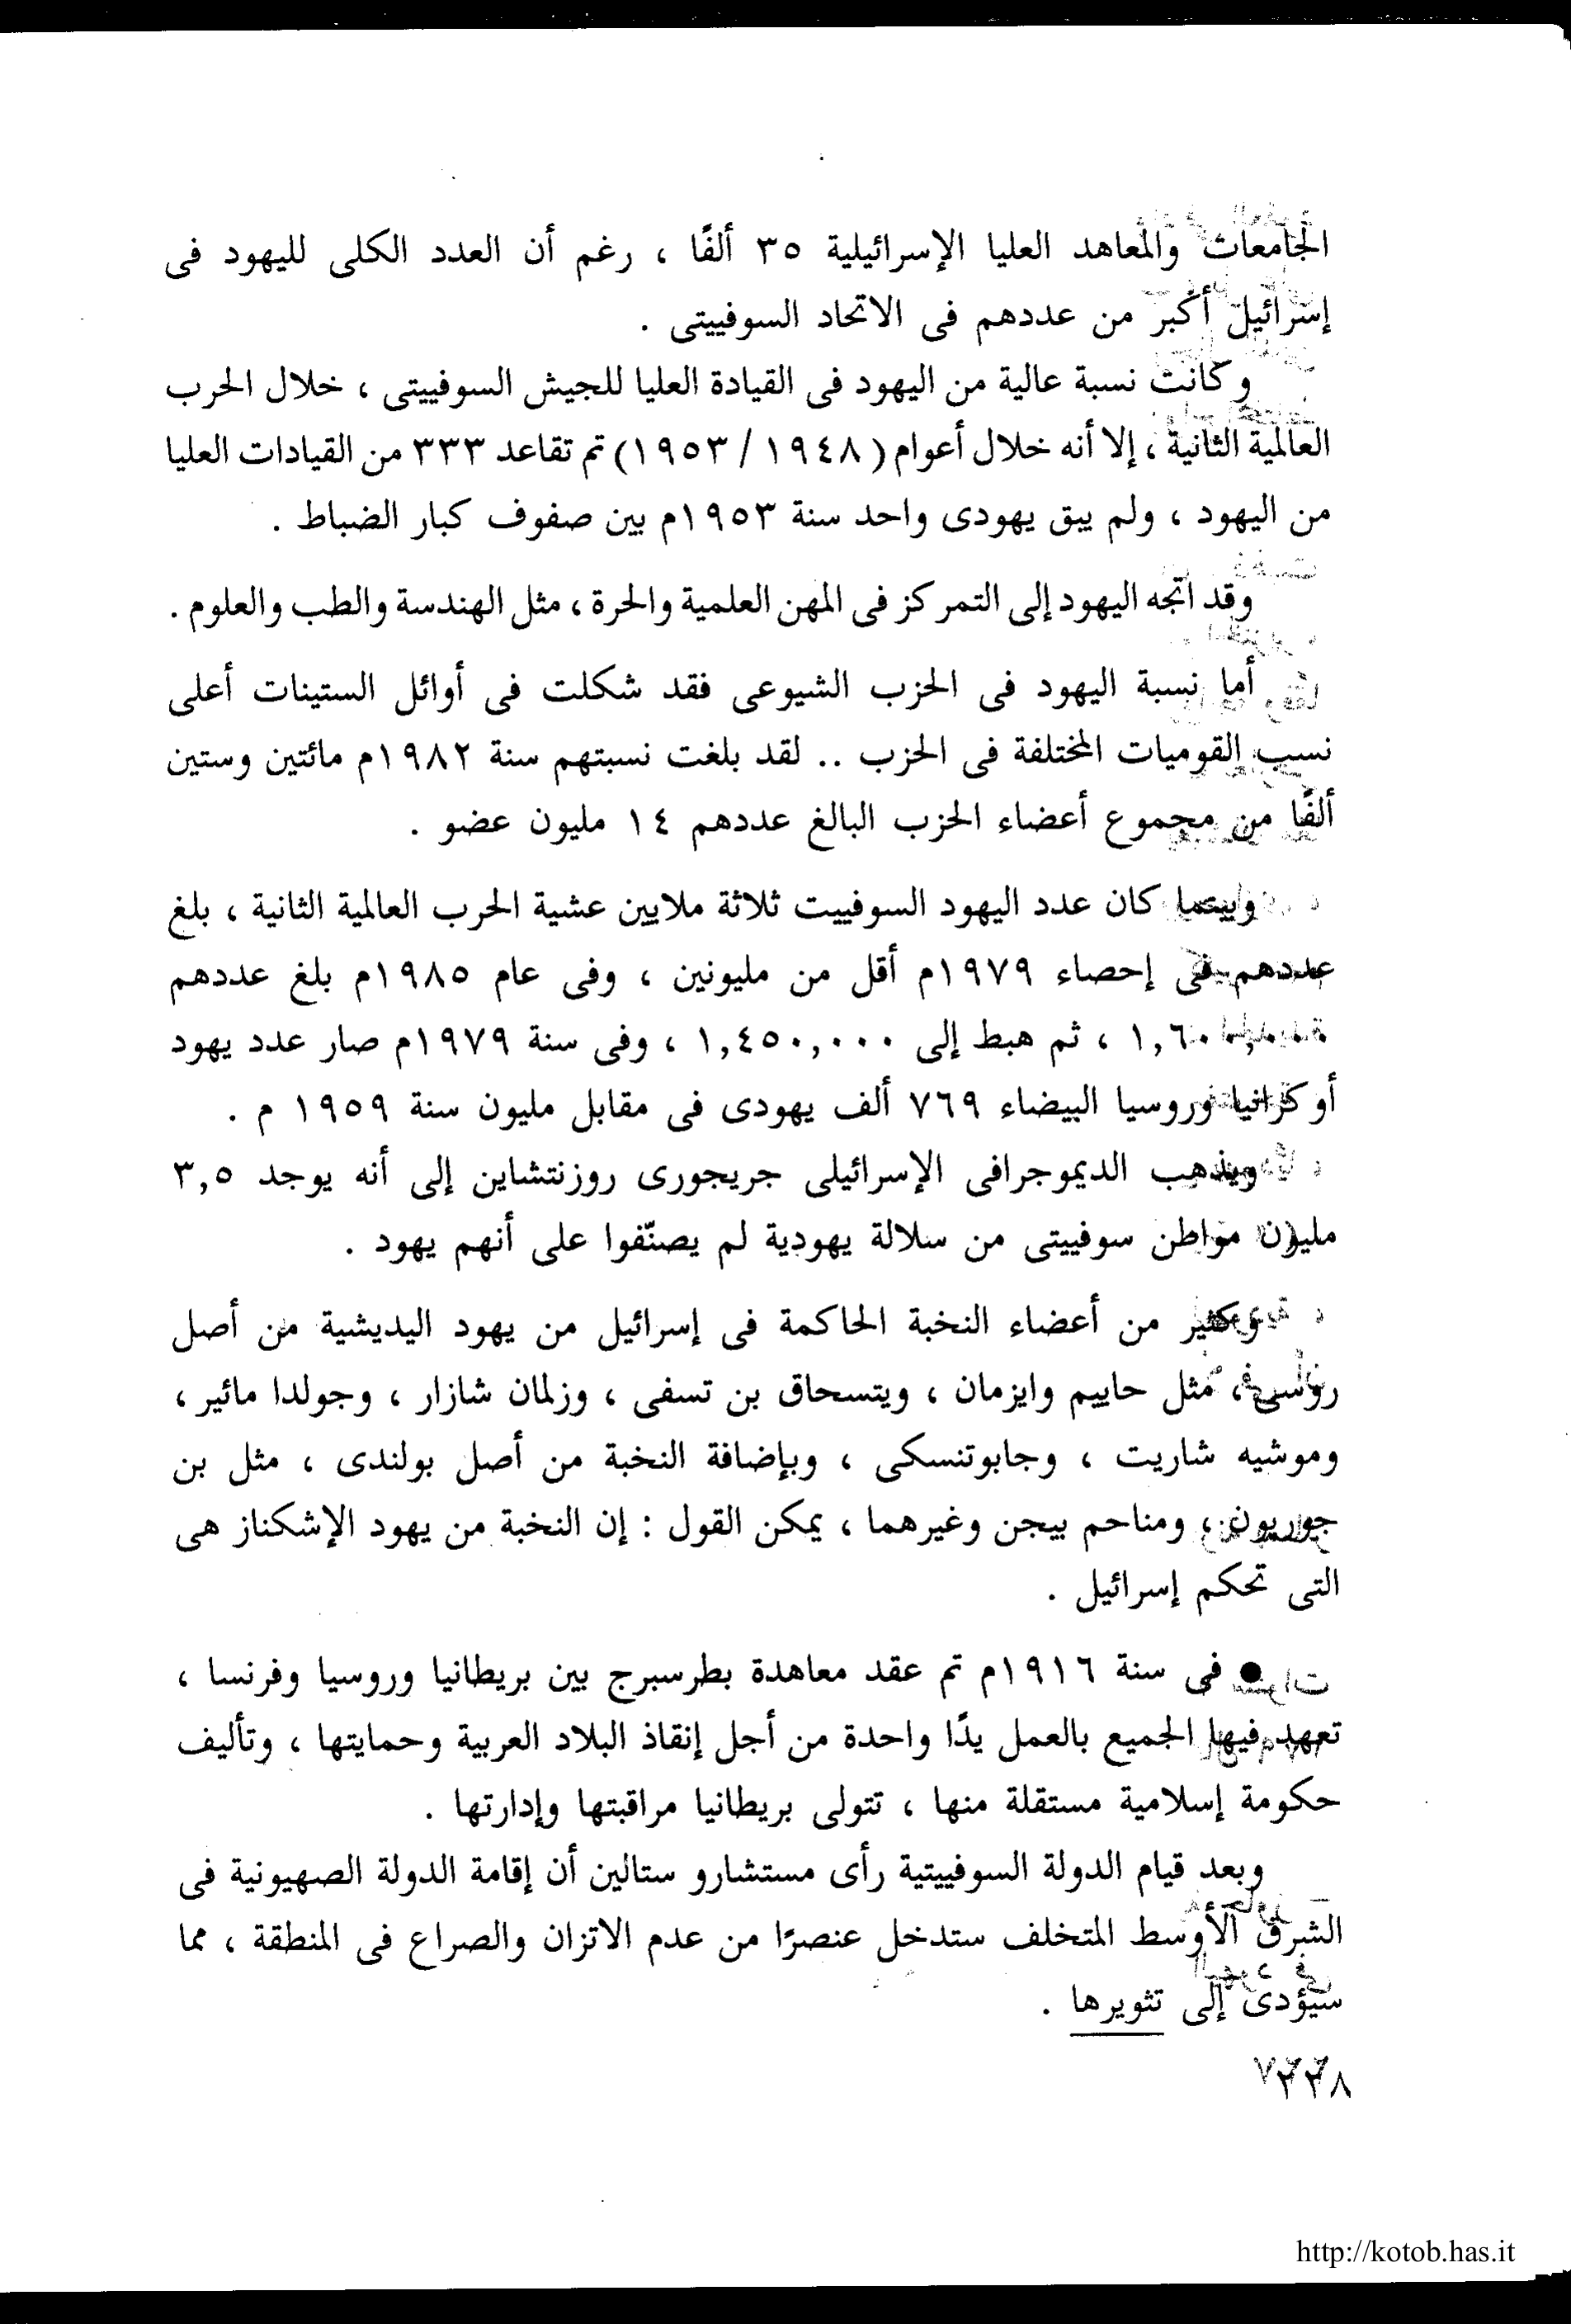 الجامعات والمعاهد العليا الإسرائيلية ٣٥ ألفًا ، رغم أن العدد الكلى لليهود فى
إسرائيل أكبر من عددهم فى الاتحاد السوفييتى .
وكانت نسبة عالية من اليهود فى القيادة العليا للجيش السوفييتى ، خلال الحرب
العالمية الثانية ، إلا أنه خلال أعوام ( ١٩٤٨ / ١٩٥٣ ) تم تقاعد ٣٣٣ من القيادات العليا
من اليهود ، ولم يبق يهودى واحد سنة ١٩٥٣م بين صفوف كبار الضباط .
وقد اتجه اليهود إلى التمركز فى المهن العلمية والحرة ، مثل الهندسة والطب والعلوم .
أما نسبة اليهود فى الحزب الشيوعى فقد شكلت فى أوائل الستينات أعلى
نسب القوميات المختلفة فى الحزب .. لقد بلغت نسبتهم سنة ١٩٨٢م مائتين وستين
ألفًا من مجموع أعضاء الحزب البالغ عددهم ١٤ مليون عضو .
وبينما كان عدد اليهود السوفييت ثلاثة ملايين عشية الحرب العالمية الثانية ، بلغ
عددهم فى إحصاء ١٩٧٩م أقل من مليونين ، وفى عام ١٩٨٥م بلغ عددهم
١,٦٠٠,٠٠٠ ، ثم هبط إلى ١,٤٥٠,٠٠٠ ، وفى سنة ١٩٧٩م صار عدد يهود
أوكرانيا وروسيا البيضاء ٧٦٩ ألف يهودى فى مقابل مليون سنة ١٩٥٩ م .
ويذهب الديموجرافى الإسرائيلى جريجورى روزنتشاين إلى أنه يوجد ٣,٥
مليون مواطن سوفييتى من سلالة يهودية لم يصنّفوا على أنهم يهود .
وكثير من أعضاء النخبة الحاكمة فى إسرائيل من يهود اليديشية من أصل
روسى ، مثل حاييم وايزمان ، ويتسحاق بن تسفى ، وزلمان شازار ، وجولدا مائير ،
وموشيه شاريت ، وجابوتنسكى ، وبإضافة النخبة من أصل بولندى ، مثل بن
جوريون ، ومناحم بيجن وغيرهما ، يمكن القول : إن النخبة من يهود الإشكناز هى
التى تحكم إسرائيل .
● فى سنة ١٩١٦م تم عقد معاهدة بطرسبرج بين بريطانيا وروسيا وفرنسا ،
تعهد فيها الجميع بالعمل يدًا واحدة من أجل إنقاذ البلاد العربية وحمايتها ، وتأليف
حكومة إسلامية مستقلة منها ، تتولى بريطانيا مراقبتها وإدارتها .
وبعد قيام الدولة السوفييتية رأى مستشارو ستالين أن إقامة الدولة الصهيونية فى
الشرق الأوسط المتخلف ستدخل عنصرًا من عدم الاتزان والصراع فى المنطقة ، مما
سيؤدى إلى تثويرها .
http://kotob.has.it